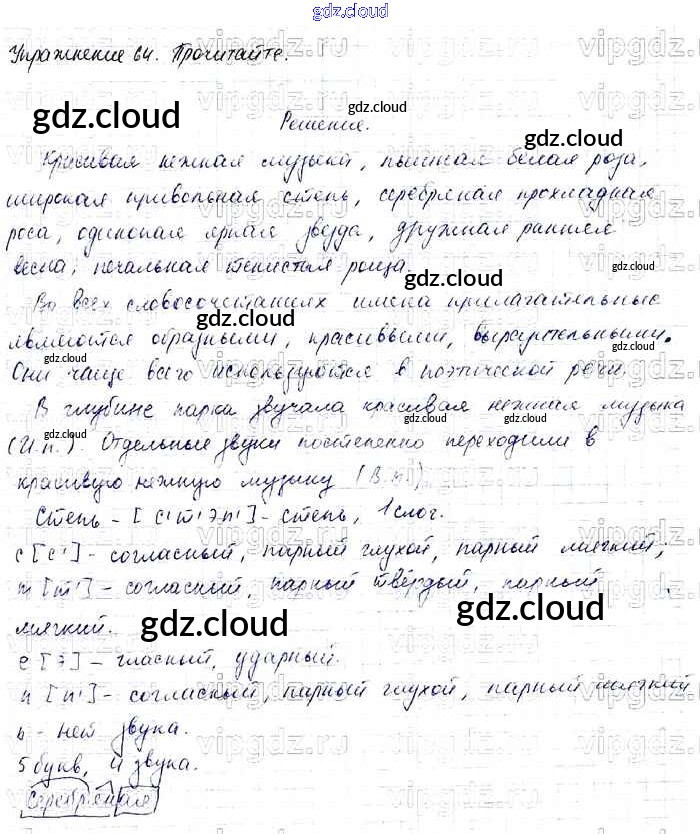 gdz.cloud
Упражнение 64. Прочитайте.
Решение.
Красивая нежная музыка, пышная белая роза,
широкая привольная степь, серебряная прохладная
роса, одинокая яркая звезда, дружная ранняя
весна, печальная тенистая роща.
Во всех словосочетаниях имена прилагательные
являются образными, красивыми, выразительными.
Они чаще всего используются в поэтической речи.
В глубине парка звучала красивая нежная музыка
(И.п.). Отдельные звуки постепенно переходили в
красивую нежную музыку (В.п.)
Степь – [с'т'эп'] – степь, 1 слог.
с [с'] – согласный, парный глухой, парный мягкий;
т [т'] – согласный, парный твёрдый, парный
мягкий.
е [э] – гласный, ударный.
п [п'] – согласный, парный глухой, парный мягкий
ь – нет звука.
5 букв, 4 звука.
Серебряная